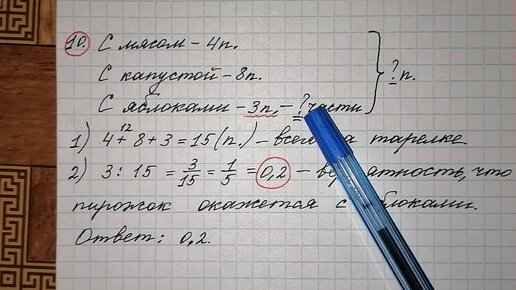 10. С мясом – 4п.
С капустой – 8п. ? п.
С яблоками – 3п, – ? части
12
1) 4 + 8 + 3 = 15 (п.) – на тарелке.
2) 3 : 15 = 3/15 = 1/5 = 0,2 – что
пирожок окажется с яблоками.
Ответ: 0,2.